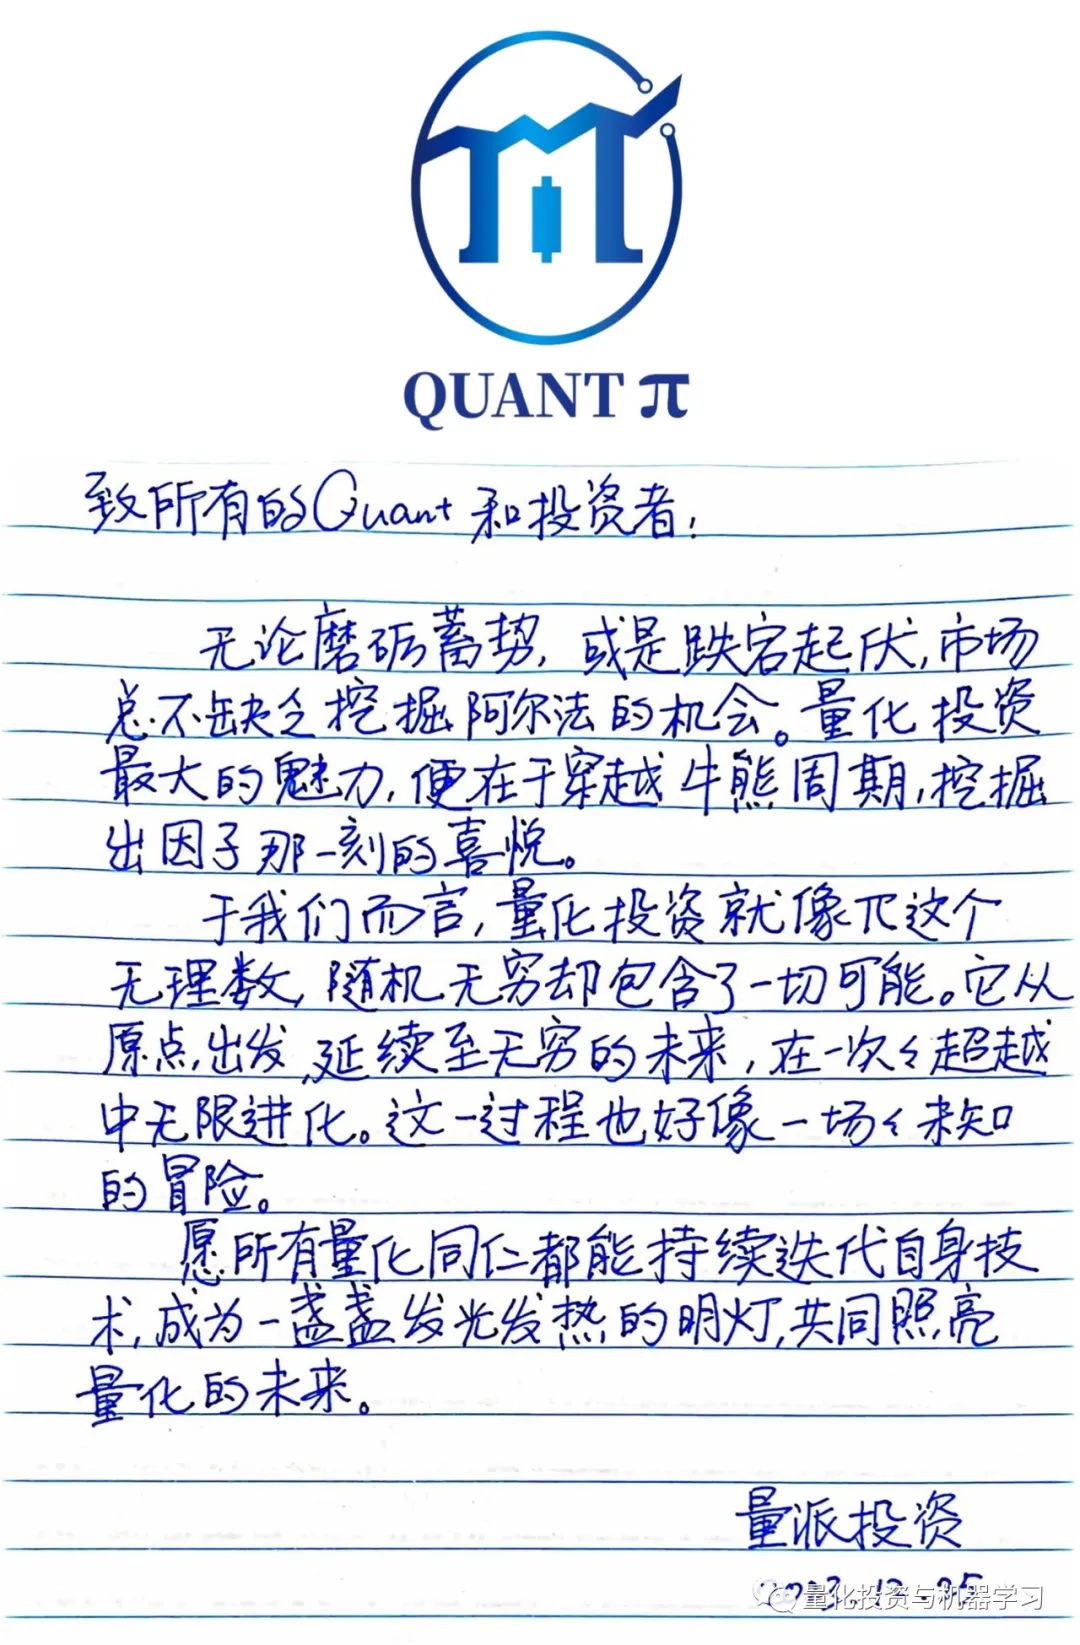 QUANT π
致所有的Quant和投资者:
无论磨砺蓄势,或是跌宕起伏,市场
总不缺乏挖掘阿尔法的机会。量化投资
最大的魅力,便在于穿越牛熊周期,挖掘
出因子那一刻的喜悦。
于我们而言,量化投资就像π这个
无理数,随机无穷却包含了一切可能。它从
原点出发,延续至无穷的未来,在一次々超越
中无限进化。这一过程也好像一场々未知
的冒险。
愿所有量化同仁都能持续迭代自身技
术,成为一盏盏发光发热的明灯,共同照亮
量化的未来。
量派投资
量化投资与机器学习